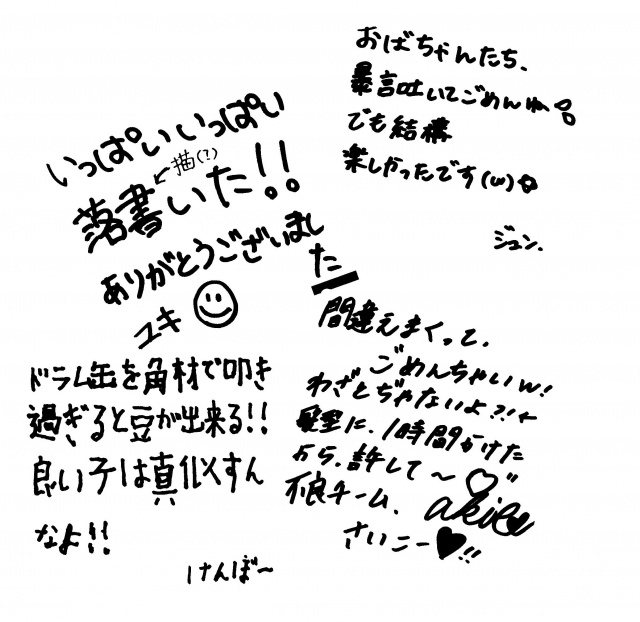 おばちゃんたち、
暴言吐いてごめんね
でも結構
楽しかったです(ω)
ジュン.
いっぱいいっぱい
描(?)
落書いた!!
ありがとうございまし
た
ユキ
ドラム缶を角材で叩き
過ぎると豆が出来る!!
良い子は真似すん
なよ!!
けんぼ〜
間違えまくって、
ごめんちゃいw!
わざとぢゃないよ?!←
髪型に、1時間かけた
から、許して〜♡"
不良チーム、
さいこー♥!!